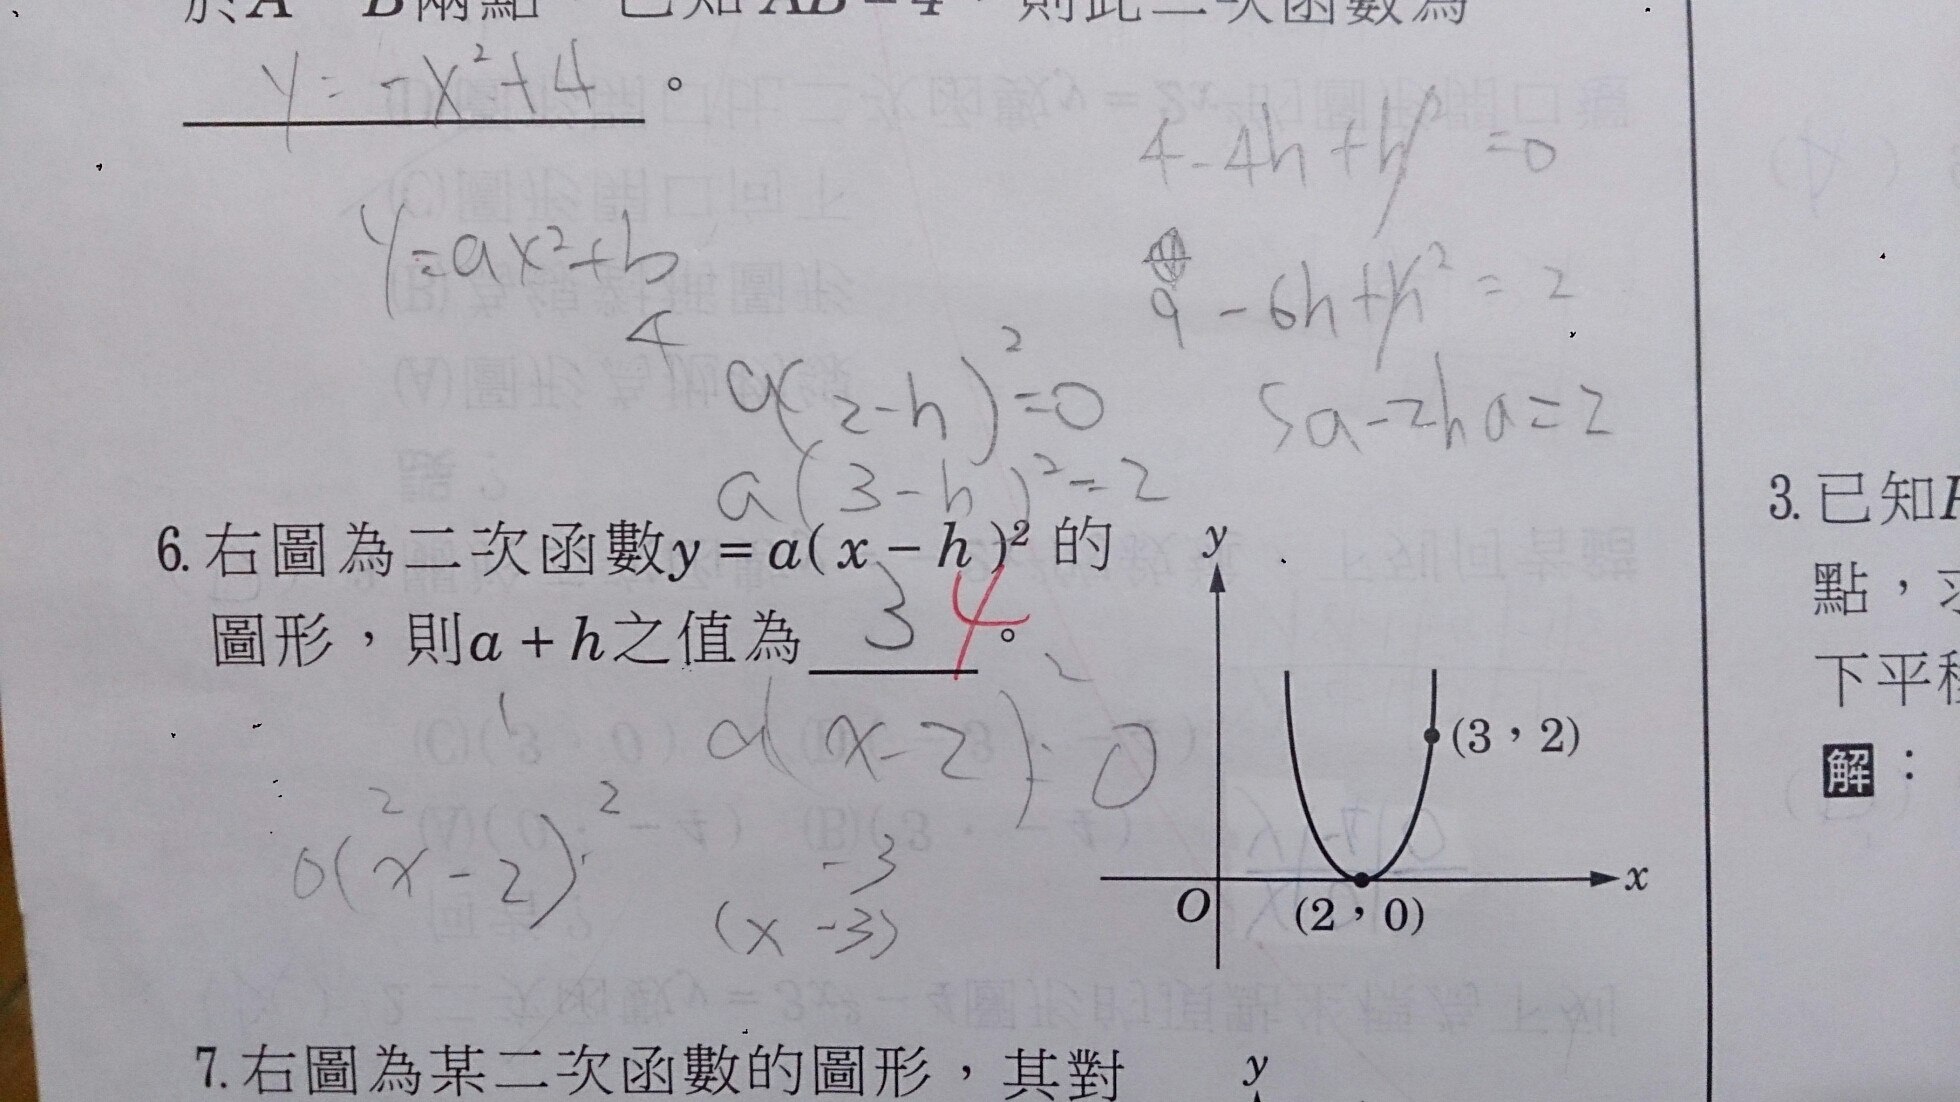 於A、B兩點，已知AB=4，則此二次函數為
y=-x²+4。
y=ax²+b
4
4-4h+h²=0
9-6h+h²=2
5a-2ha=2
a(2-h)²=0
a(3-h)²=2
6.右圖為二次函數y=a(x-h)²的
圖形，則a+h之值為 3 4。
a(x-2)²=0
2
(x-2)²
-3
(x-3)
y
(3，2)
x
O
(2，0)
7.右圖為某二次函數的圖形，其對
y
3.已知
點，
下平
解：